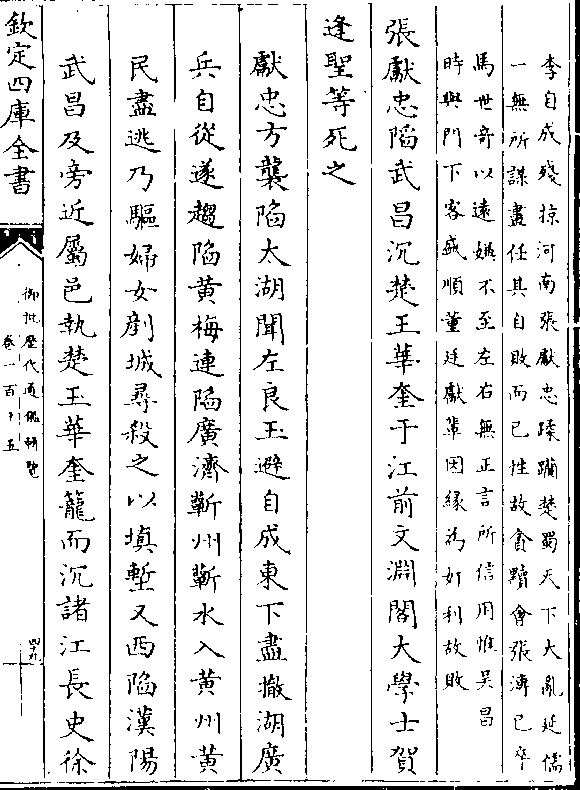 李自成殘掠河南張獻忠蹂躪楚蜀天下大亂延儒
一無所謀畫任其自敗而已性故貪黷會張溥已卒
馬世奇以遠嫌不至左右無正言所信用惟吳昌
時與門下客盛順董廷獻輩因縁為奸利故敗
張獻忠陷武昌沉楚王華奎于江前文淵閣大學士賀
逢聖等死之
獻忠方襲陷太湖聞左良玉避自成東下盡撤湖廣
兵自從遂趨陷黄梅連陷廣濟蘄州蘄水入黄州黄
民盡逃乃驅婦女剷城尋殺之以填塹又西陷漢陽
武昌及旁近屬邑執楚王華奎籠而沉諸江長史徐
欽定四庫全書
御批歷代通鑑輯覽
卷一百十五
四十九